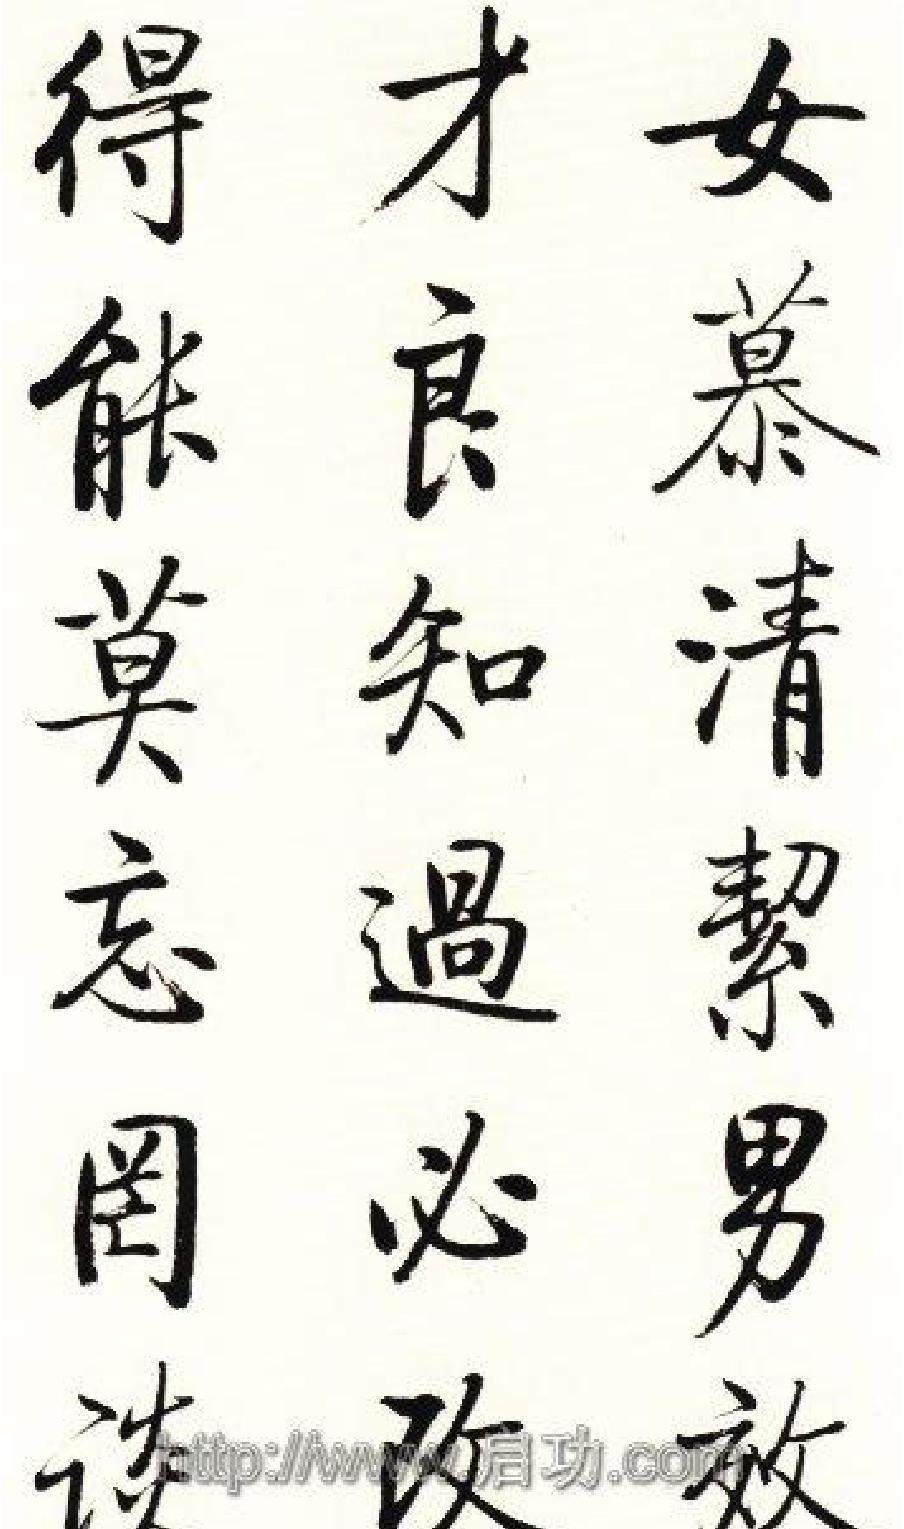 女慕清潔男效
才良知過必改
得能莫忘罔談
http://www.启功.com